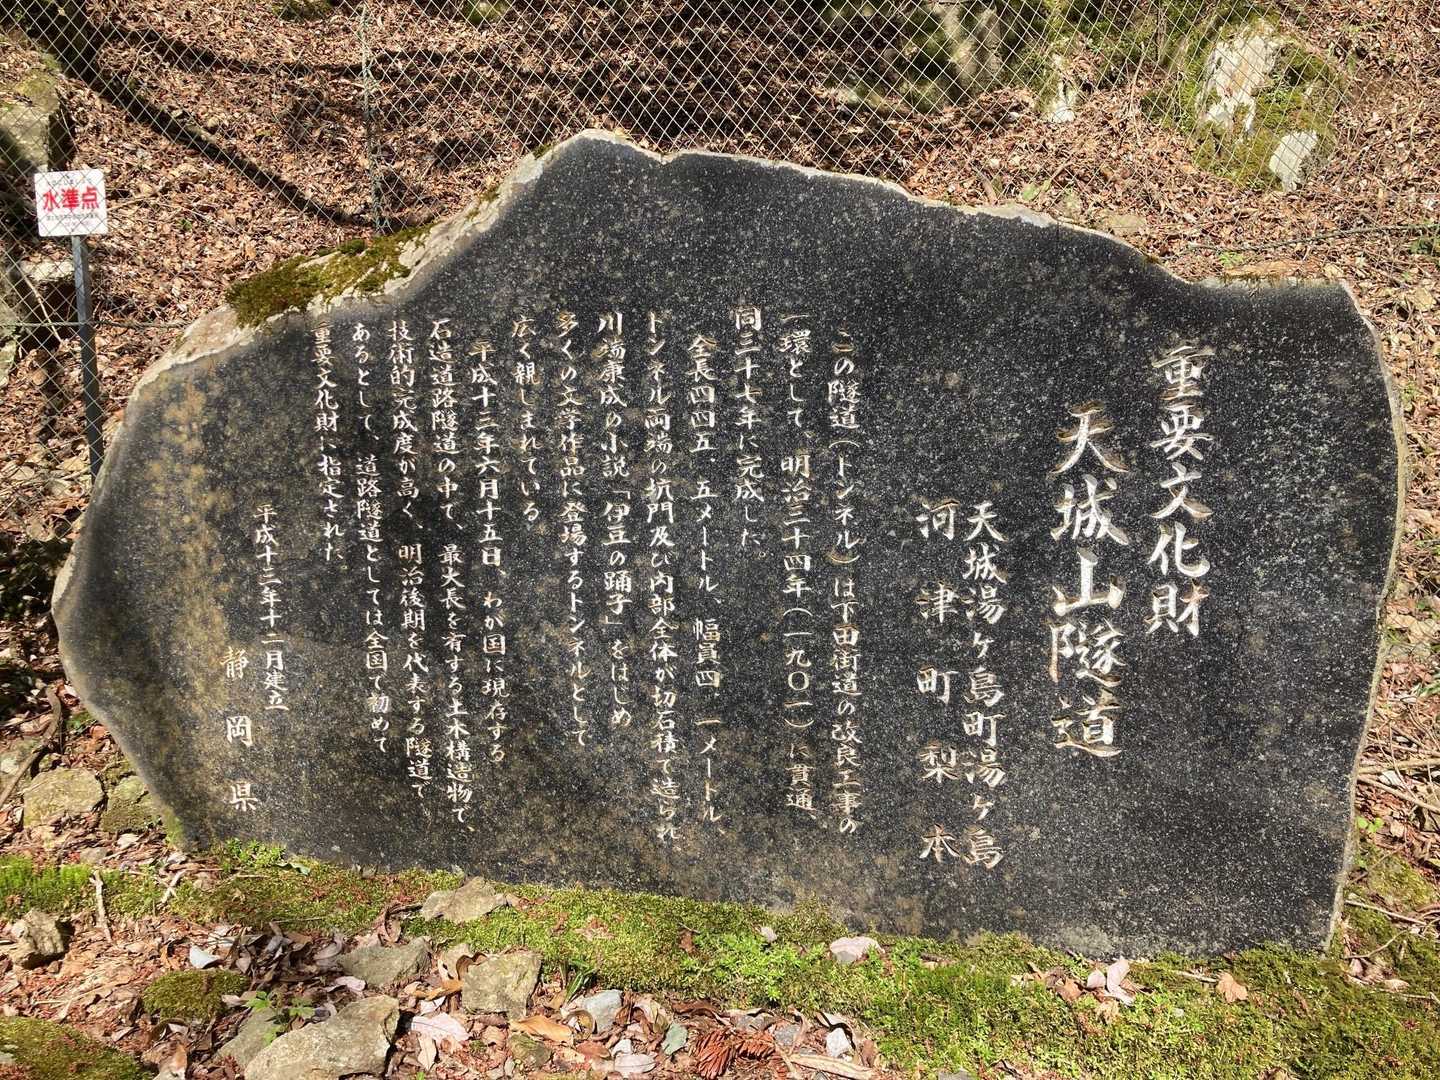 重要文化財
天城山隧道
天城湯ヶ島町湯ヶ島
河津町梨本
この隧道（トンネル）は下田街道の改良工事の
一環として、明治三十四年（一九〇一）に貫通、
同三十七年に完成した。
全長四四五．五メートル、幅員四．一メートル、
トンネル両端の坑門及び内部全体が切石積で造られ
川端康成の小説「伊豆の踊子」をはじめ
多くの文学作品に登場するトンネルとして
広く親しまれている。
平成十三年六月十五日、わが国に現存する
石造道路隧道の中で、最大長を有する土木構造物で、
技術的完成度が高く、明治後期を代表する隧道で
あるとして、道路隧道としては全国で初めて
重要文化財に指定された。
平成十三年十二月建立
静岡県
水準点